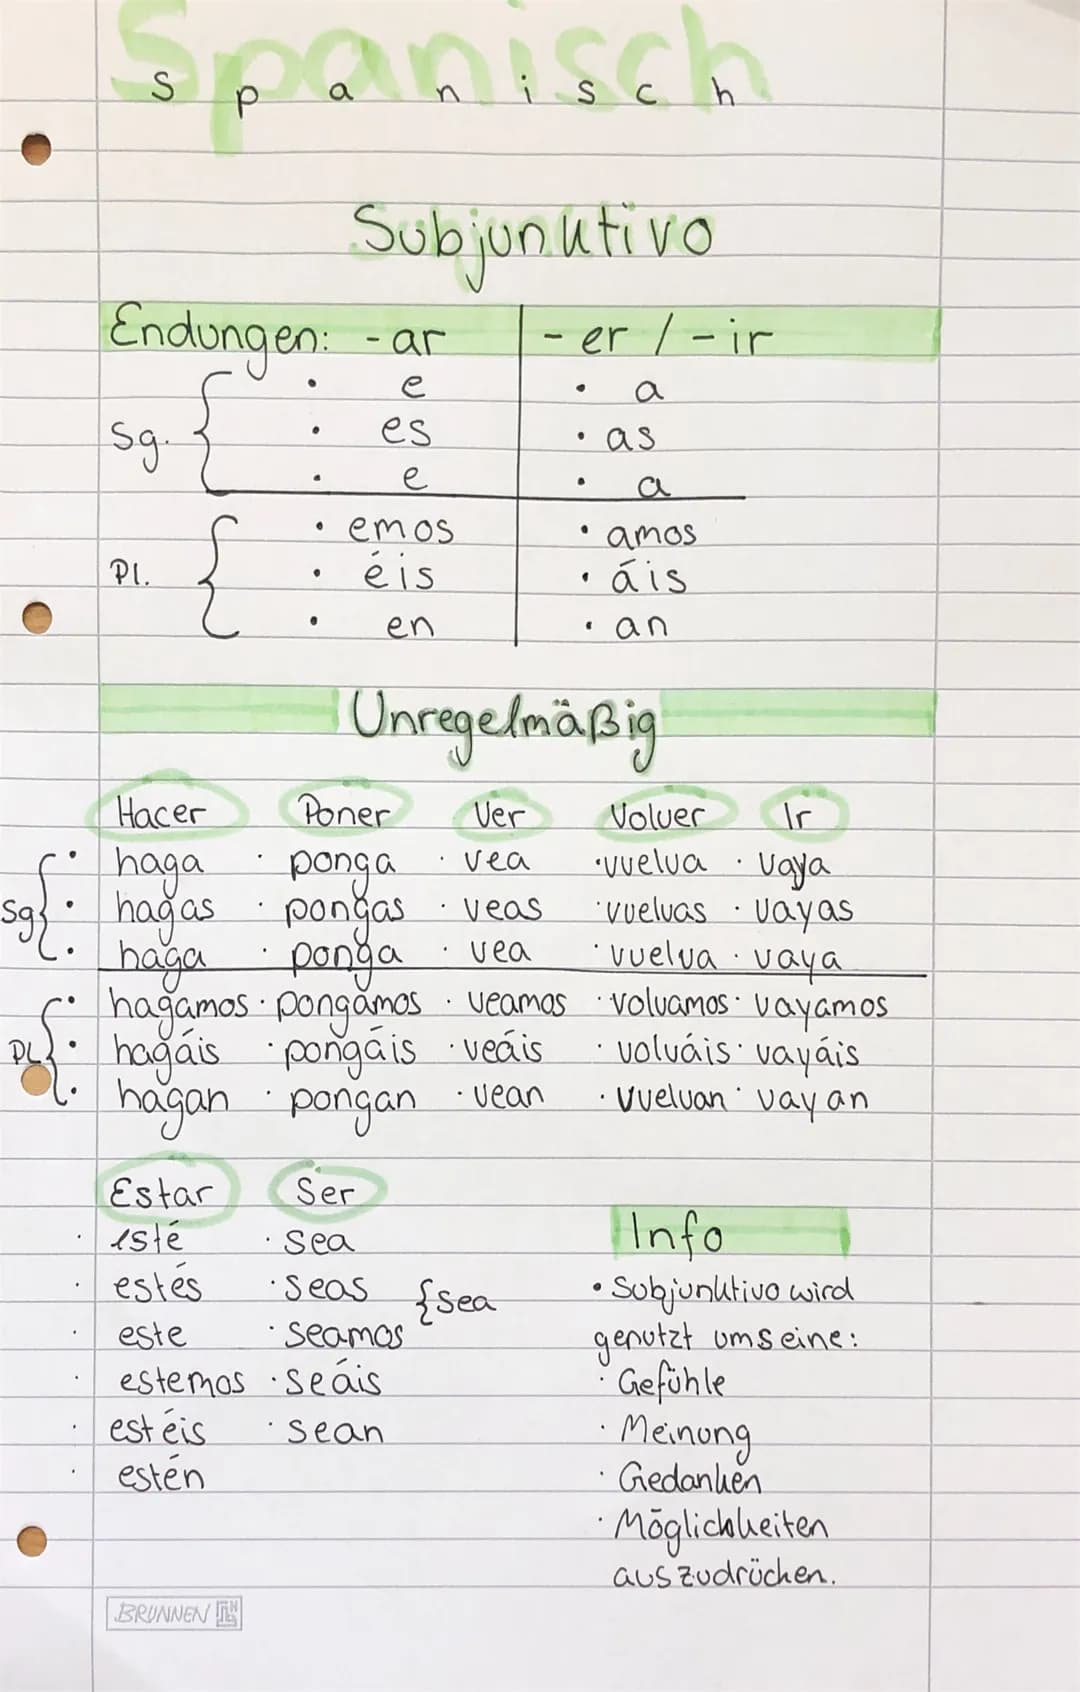 Spanisch
S p a n i s c h
Subjunktivo
Endungen: -ar | - er / - ir
Sg. { • e • a
• es • as
• e • a
Pl. { • emos • amos
• éis • áis
• en • an
Unregelmäßig
Hacer Poner Ver Volver Ir
Sg { • haga • ponga • vea • vuelva • vaya
• hagas • pongas • veas • vuelvas • vayas
• haga • ponga • vea • vuelva • vaya
PL { • hagamos • pongamos • veamos • volvamos • vayamos
• hagáis • pongáis • veáis • volváis • vayáis
• hagan • pongan • vean • vuelvan • vayan
Estar Ser
• esté • sea
• estés • seas { sea
• este • seamos
• estemos • seáis
• estéis • sean
• estén
Info
• Subjunktivo wird
genutzt um seine:
• Gefühle
• Meinung
• Gedanken
• Möglichkeiten
auszudrücken.
BRUNNEN